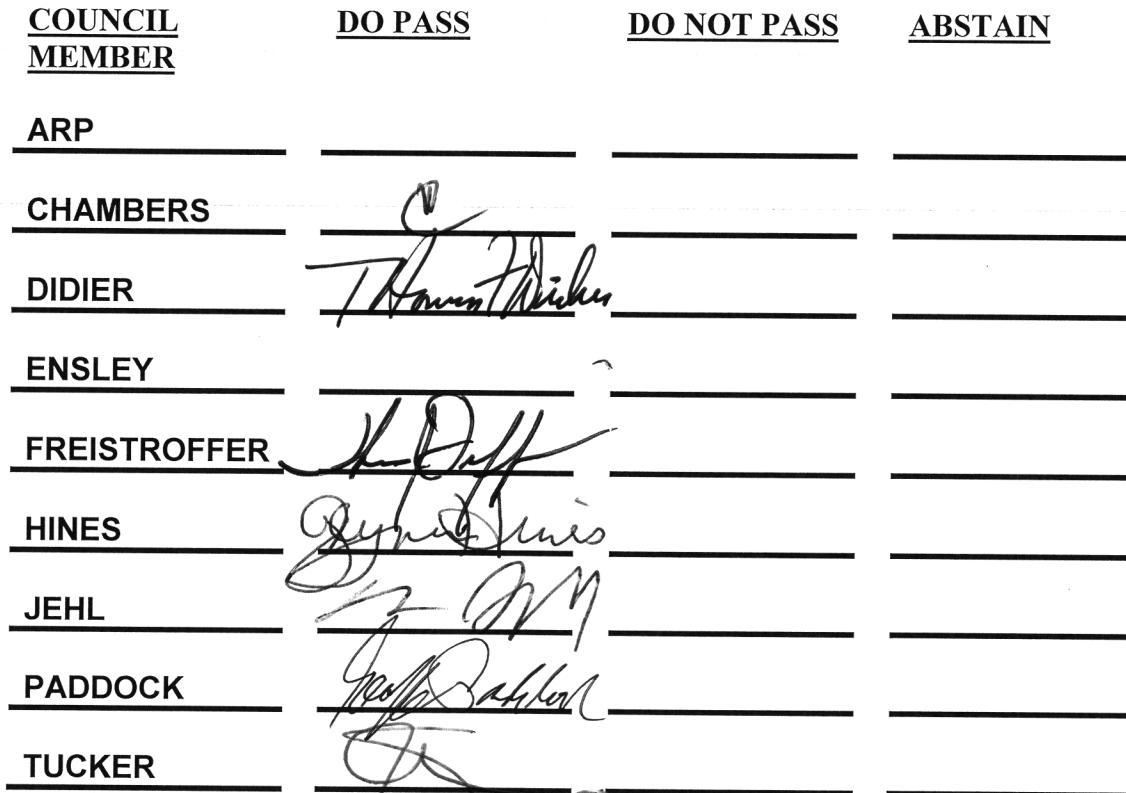 COUNCIL MEMBER DO PASS DO NOT PASS ABSTAIN
ARP
CHAMBERS
DIDIER Thomas F Didier
ENSLEY
FREISTROFFER
HINES Hines
JEHL
PADDOCK Geoff Paddock
TUCKER